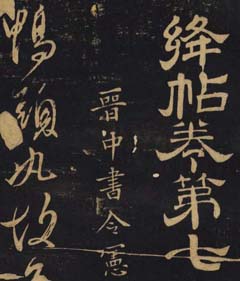 絳帖卷第七
晉中書令憲
鴨頭丸故